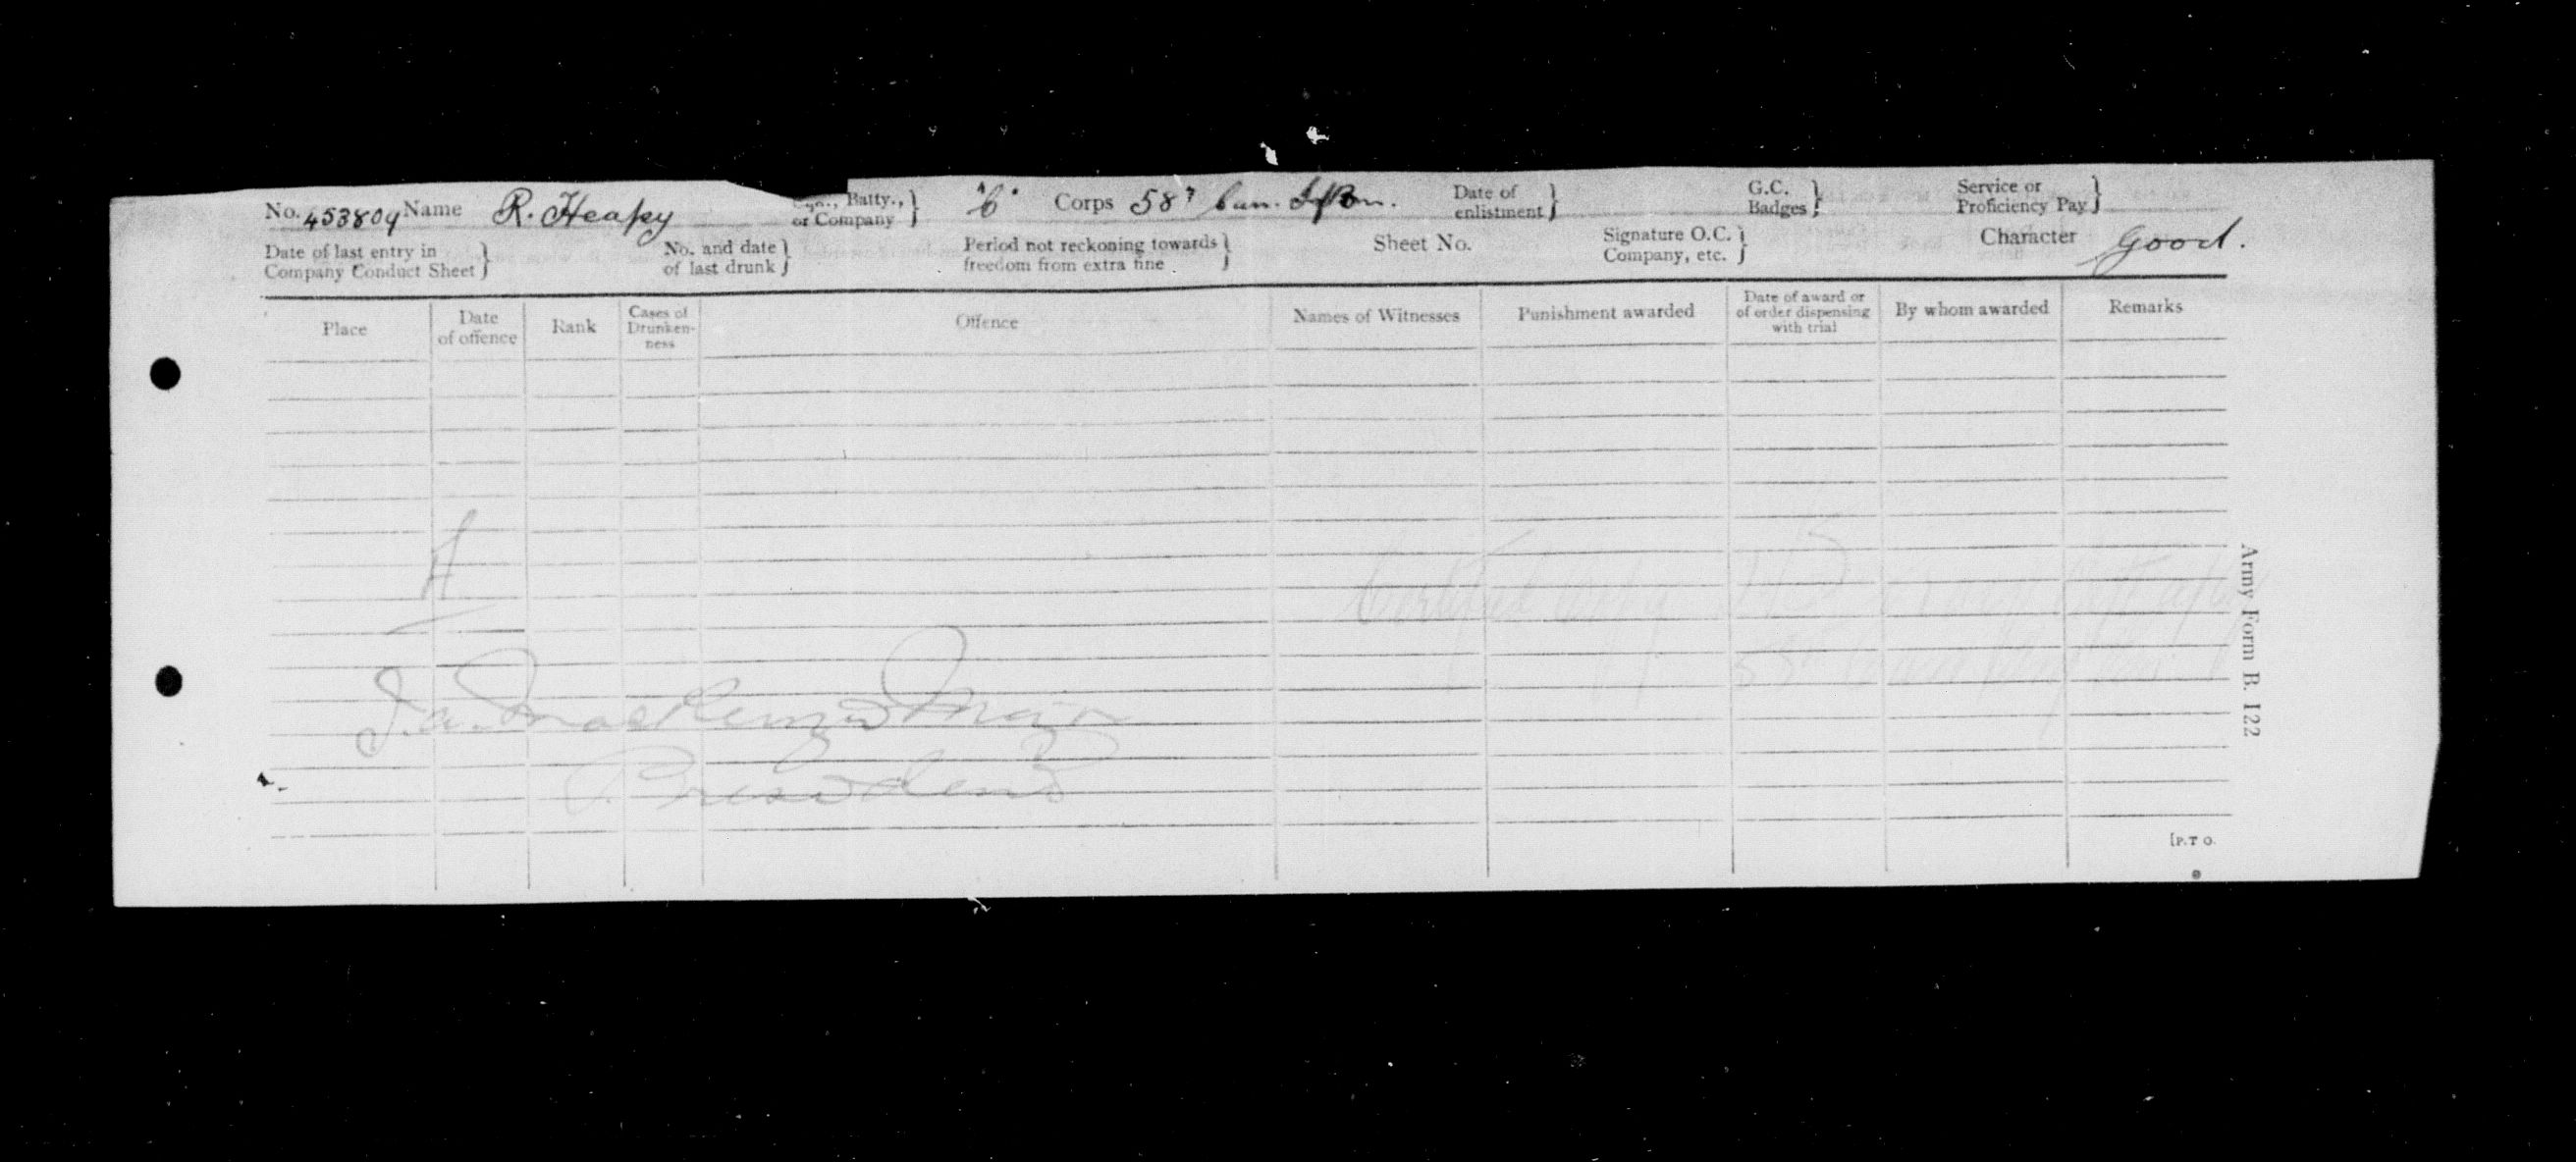 No. 453809 Name R. Heapy Sqn., Batty., or Company } "C" Corps 58th Can. Inf Bn. Date of enlistment } G.C. Badges } Service or Proficiency Pay }
Date of last entry in Company Conduct Sheet } No. and date of last drunk } Period not reckoning towards freedom from extra fine } Sheet No. Signature O.C. Company, etc. } Character Good.
Place Date of offence Rank Cases of Drunkenness Offence Names of Witnesses Punishment awarded Date of award or of order dispensing with trial By whom awarded Remarks
A
Certified
58
J. A. Mackenzie Major
President
Army Form B. 122
[P.T O.